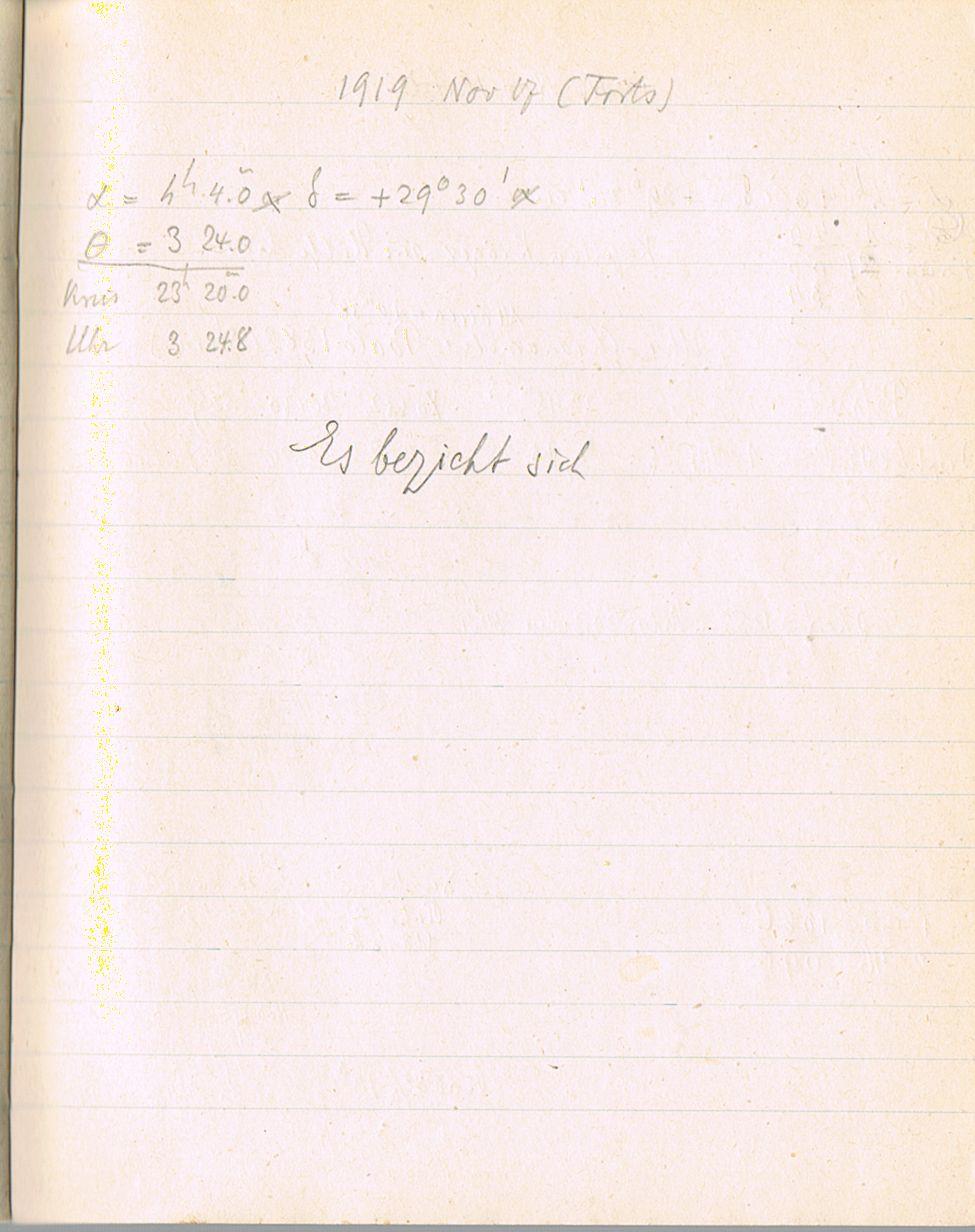 1919 Nov 17 (Forts)
α = 4ʰ 4.ᵐ0 δ = +29° 30'
θ = 3 24.0
Kreis 23ʰ 20.ᵐ0
Uhr 3 24.8
Es bezieht sich